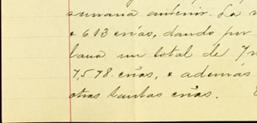 semana anterior. La
e 613 crias, dando por
un total de
7,578 crias, e además
otras tantas crias.